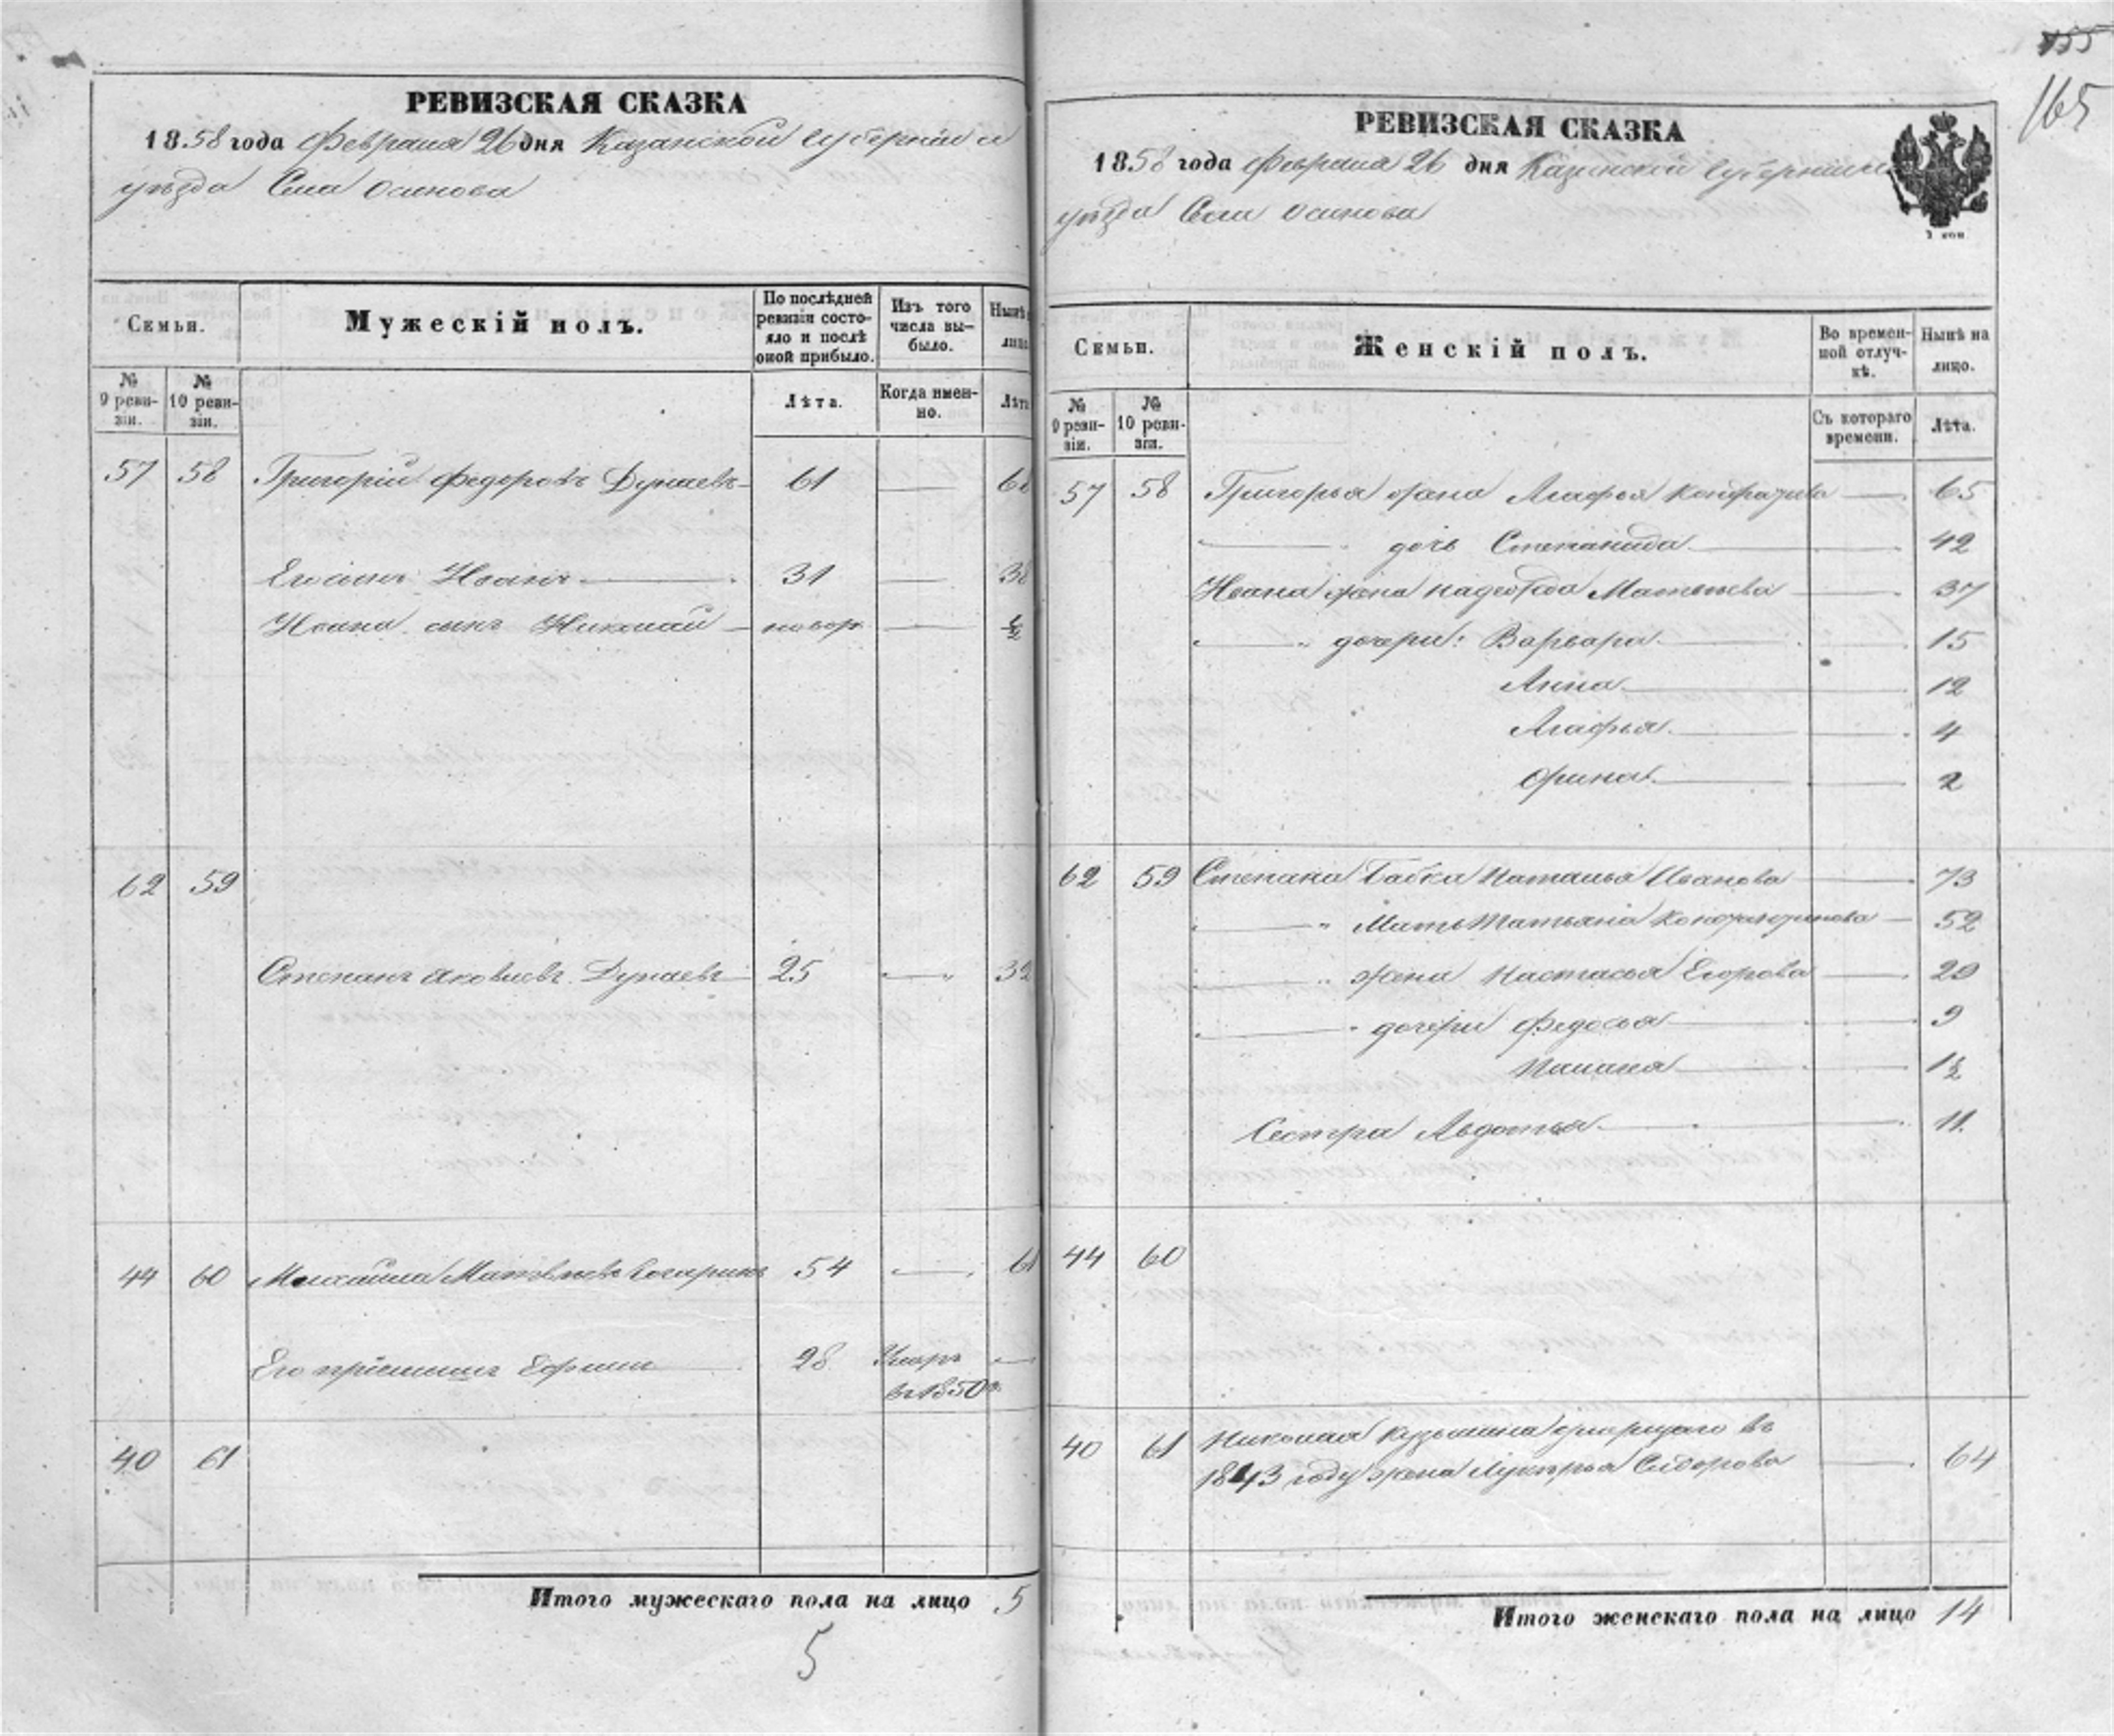 РЕВИЗСКАЯ СКАЗКА
1858 года Февраля 26 дня Казанской Губерніи и
уѣзда Села Осинова
Семьи.
Мужескій полъ.
По послѣдней ревизіи состояло и послѣ оной прибыло.
Изъ того числа выбыло.
Нынѣ
лицо
№ 9 ревизіи.
№ 10 ревизіи.
Лѣта.
Когда именно.
Лѣта
57 58 Григорій Федоровъ Дунаевъ 61 — 68
Его сынъ Иванъ — 31 — 38
Ивана сынъ Николай — новор — ½
62 59
Степанъ Яковлевъ Дунаевъ 25 — 32
44 60 Михайла Матвѣевъ 54 — 61
Его пріемышъ Ефимъ 28 Умеръ —
въ 1850 г.
40 61
Итого мужескаго пола на лицо 5
5
155
165
РЕВИЗСКАЯ СКАЗКА
1858 года Февраля 26 дня Казанской Губерніи и
уѣзда Села Осинова
2 коп.
Семьи.
Женскій полъ.
Во временной отлучкѣ.
Нынѣ на лицо.
№ 9 ревизіи.
№ 10 ревизіи.
Съ котораго времени.
Лѣта.
57 58 Григорья жена Агафья Кондратьева — 65
— дочь Степанида — 42
Ивана жена Надежда Матвѣева — 37
— " дочери: Варвара — 15
Анна — 12
Агафья — 4
Орина — 2
62 59 Степана Бабка Наталья Иванова — 73
— " Мать Татьяна — 52
— " жена Настасья Егорова — 29
— " дочери Федосья — 9
1½
Сестра Авдотья — 11.
44 60
40 61 Николая Кузьмина умершаго въ
1843 году жена Лукерья Сидорова — 64
Итого женскаго пола на лицо 14